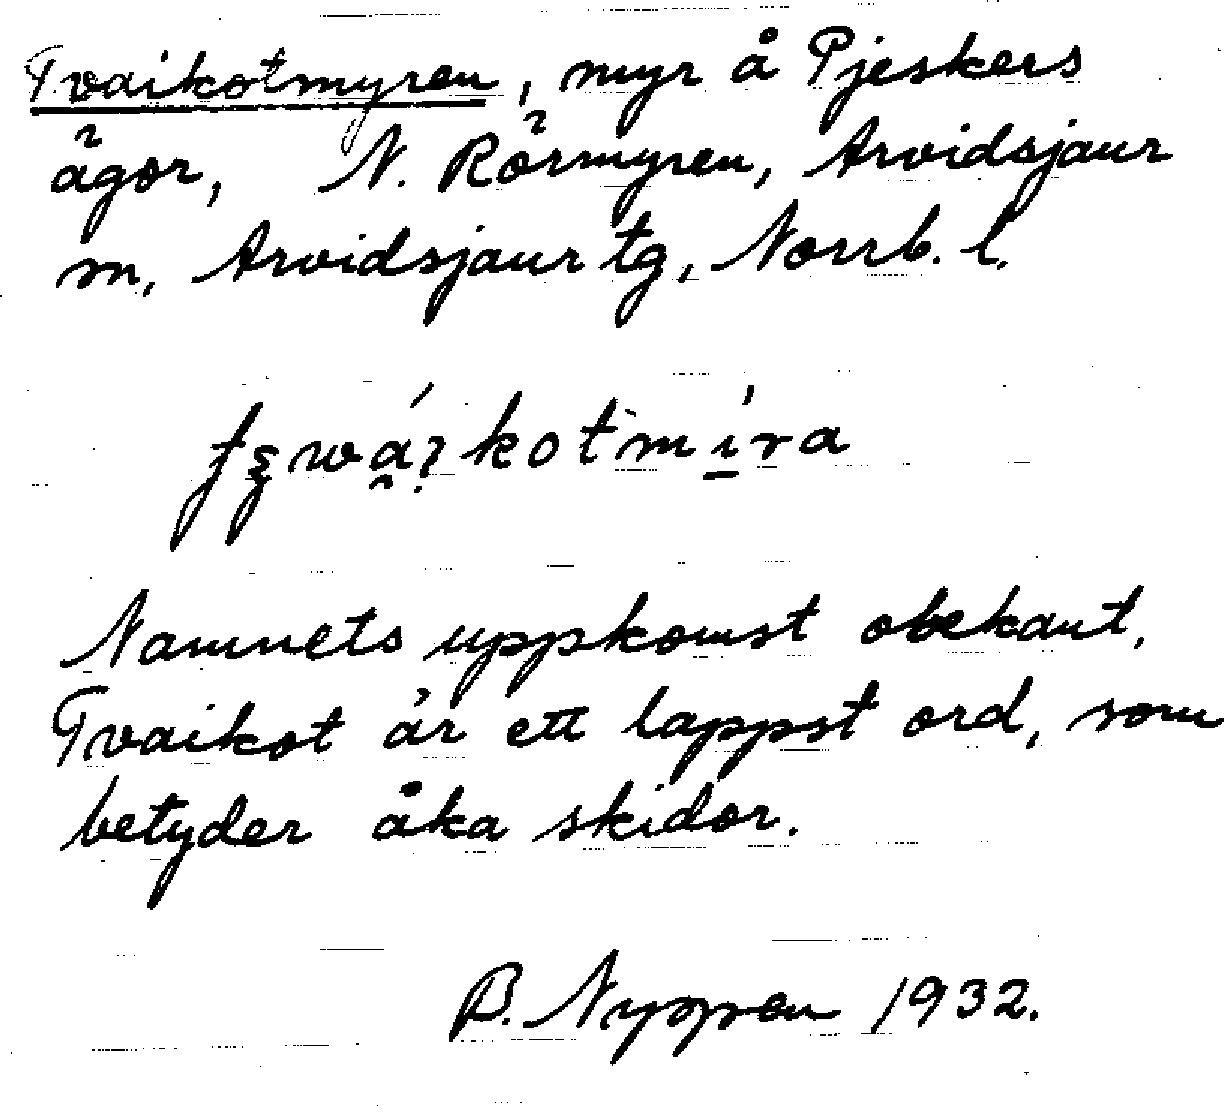 Tvaikotmyren, myr å Pjeskers
ägor, N. Rörmyren, Arvidsjaur
sn, Arvidsjaur tg, Norrb. l.
Namnets uppkomst obekant.
Tvaikot är ett lappst ord, som
betyder åka skidor.
B. Nygren 1932.